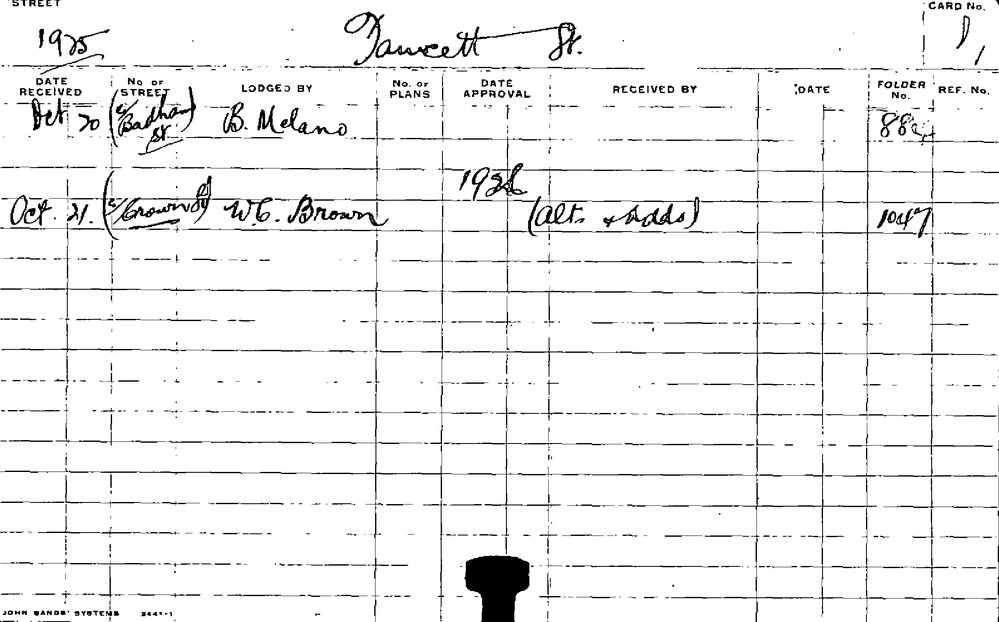 STREET
CARD No.
1925 Fawcett St. 1
DATE RECEIVED No. OF STREET LODGED BY No. OF PLANS DATE APPROVAL RECEIVED BY DATE FOLDER No. REF. No.
Oct 20 (c/ Badham St) B. Melano
1926
Oct. 21. (c/ Crown St) W.C. Brown (Alts. & Adds) 1047
JOHN SANDS' SYSTEMS 2441-1